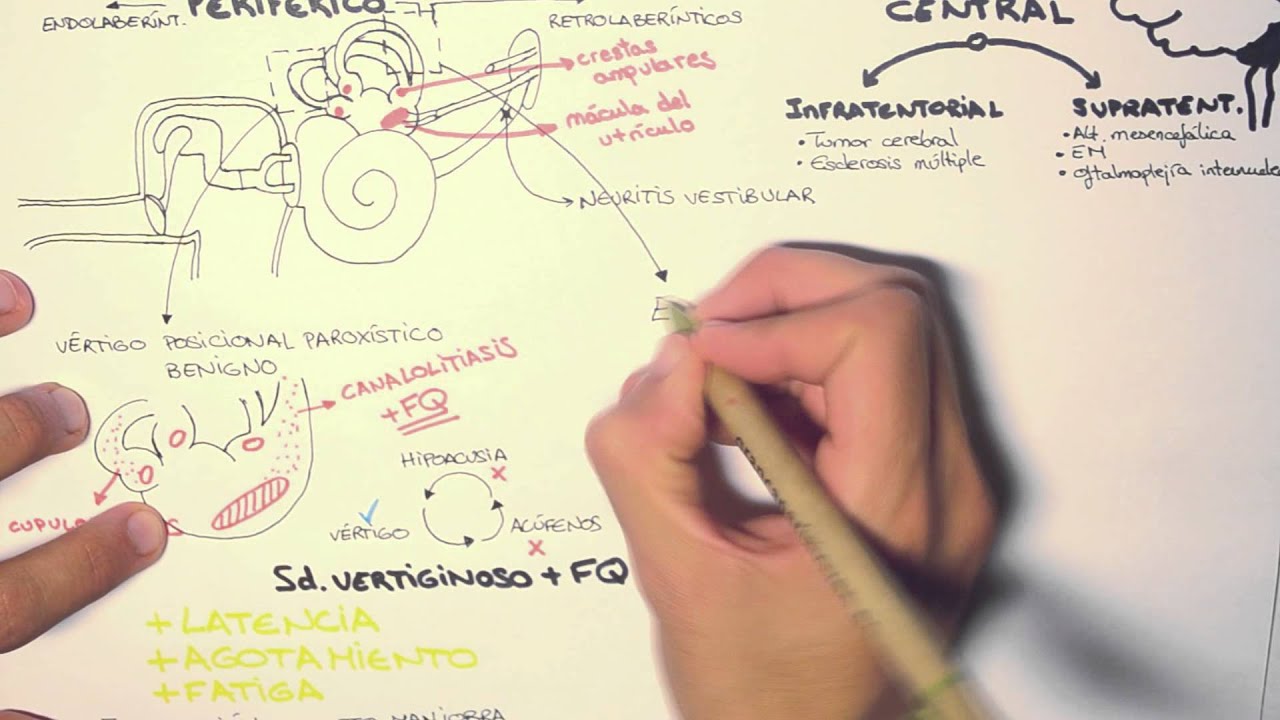 PERIFÉRICO
ENDOLABERÍNT.
RETROLABERÍNTICOS
crestas
ampulares
mácula del
utrículo
NEURITIS VESTIBULAR
CENTRAL
INFRATENTORIAL
• Tumor cerebral
• Esclerosis múltiple
SUPRATENT.
• Alt. mesencefálica
• EM
• Oftalmoplejía
VÉRTIGO POSICIONAL PAROXÍSTICO
BENIGNO
CANALOLITIASIS
+FQ
HIPOACUSIA
VÉRTIGO
ACÚFENOS
Sd. VERTIGINOSO + FQ
+ LATENCIA
+ AGOTAMIENTO
+ FATIGA
MANIOBRA